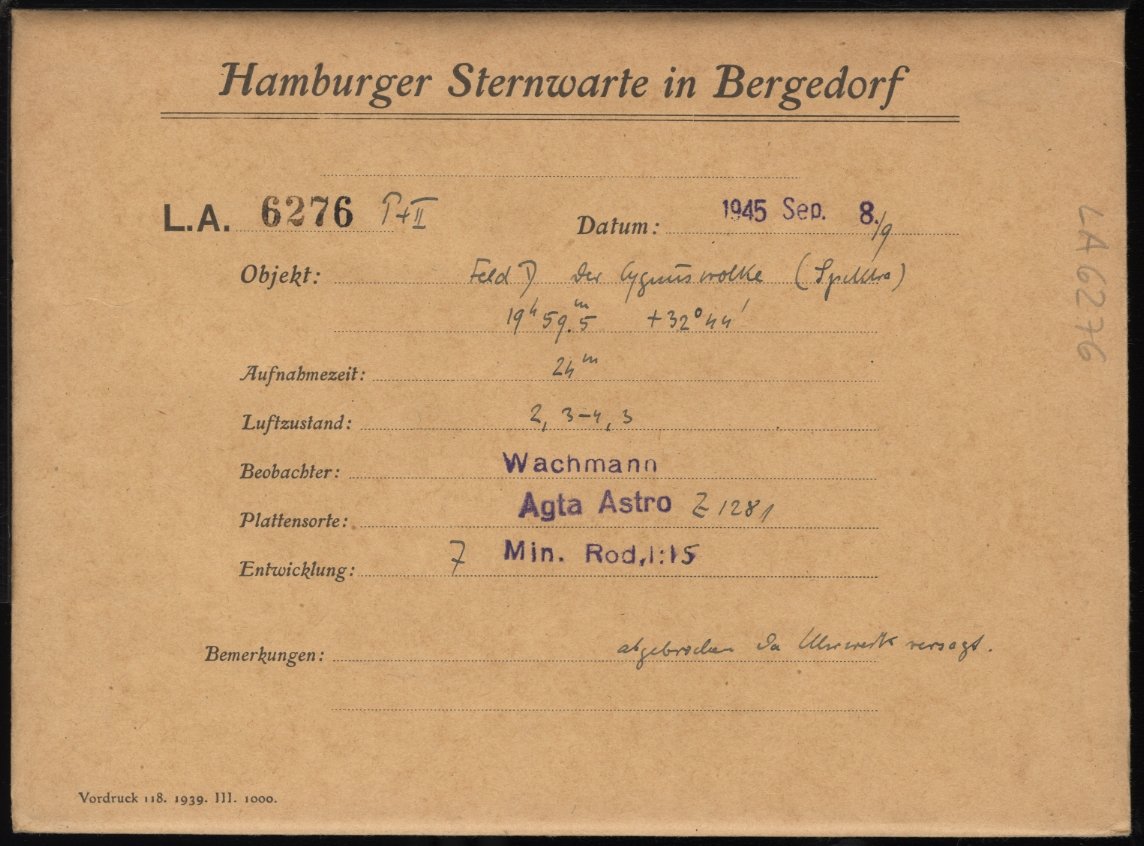 Hamburger Sternwarte in Bergedorf
L.A. 6276 P+II Datum: 1945 Sep. 8./9
Objekt: Feld D der Cygnuswolke (Spektra)
19ʰ59.ᵐ5 +32°44'
Aufnahmezeit: 24ᵐ
Luftzustand: 2, 3-4, 3
Beobachter: Wachmann
Plattensorte: Agfa Astro Z 1281
Entwicklung: 7 Min. Rod, 1:15
Bemerkungen: abgebrochen da Uhrwerk versagt.
Vordruck 118. 1939. III. 1000.
LA 6276